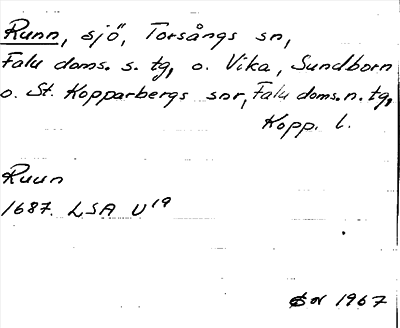 Runn, sjö, Torsångs sn,
Falu doms. s. tg, o. Vika, Sundborn
o. St. Kopparbergs snr, Falu doms. n. tg,
Kopp. l.
Ruun
1687. LSA U19
1967